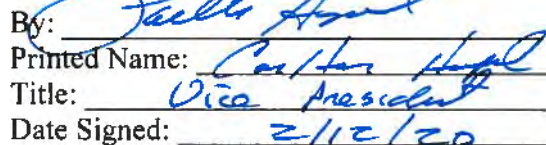 By:
Printed Name: Carlton
Title: Vice President
Date Signed: 2/12/20